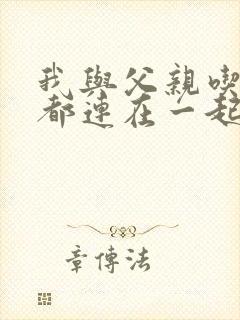 我與父親喫
都連在一起
章傳法